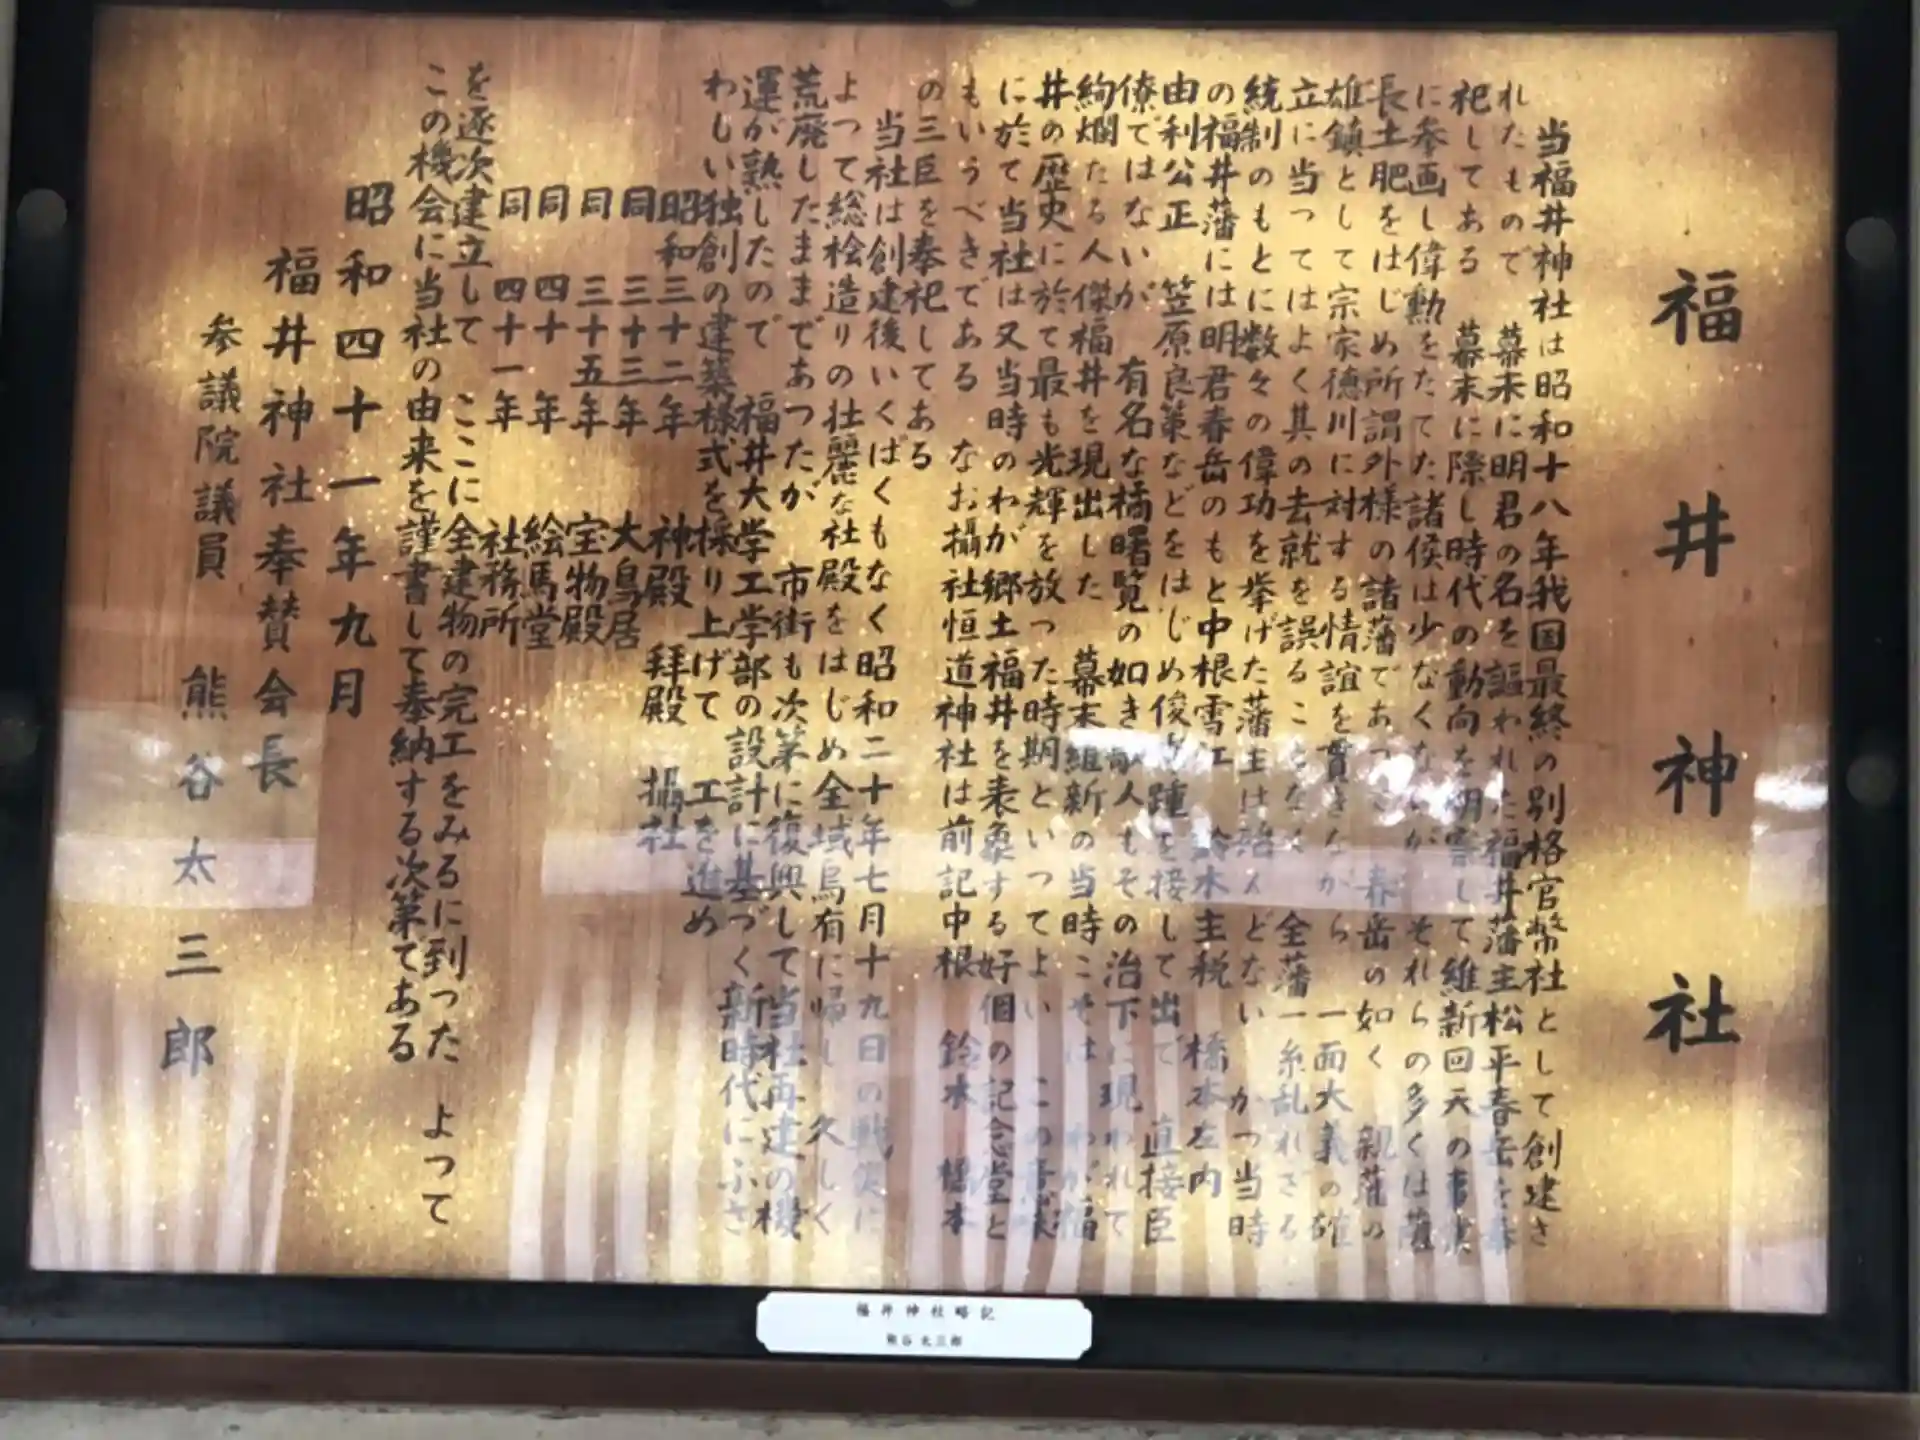 福井神社
当福井神社は昭和十八年我国最終の別格官幣社として創建さ
れたもので 幕末に明君の名を謳われた福井藩主松平春岳を奉
祀してある 幕末に際し時代の動向を明察して維新回天の
に参画し偉勲をたてた諸侯は少なくないが それらの多くは薩
長土肥をはじめ所謂外様の諸藩であつ 春岳の如く 親藩の
雄鎮として宗家徳川に対する情誼を貫きながら 一面大義の確
立に当ってはよく其の去就を誤ることなく 全藩一糸乱れざる
統制のもとに数々の偉功を挙げた藩主は殆んどない かつ当時
の福井藩には明君春岳のもと中根雪江 鈴木主税 橋本左内
由利公正 笠原良策などをはじめ俊 踵を接して出で 直接臣
僚ではないが 有名な橘曙覧の如き 人もその治下に現われて
絢爛たる人傑福井を現出した 幕末維新の当時こそは わが福
井の歴史に於て最も光輝を放った時期といってよい この意味
に於て当社は又当時のわが郷土福井を表象する好個の記念堂と
もいうべきである なお攝社恒道神社は前記中根 鈴木 橋本
の三臣を奉祀してある
当社は創建後いくばくもなく昭和二十年七月十九日の戦災に
よって総桧造りの壮麗な社殿をはじめ全域烏有に帰し 久しく
荒廃したままであつたが 市街も次第に復興して当社再建の機
運が熟したので 福井大学工学部の設計に基づく新時代にふさ
わしい独創の建築様式を採り上げて 工を進め
昭和三十二年 神殿 拝殿 攝社
同 三十三年 大鳥居
同 三十五年 宝物殿
同 四十 年 絵馬堂
同 四十一年 社務所
を逐次建立して ここに全建物の完工をみるに到った よって
この機会に当社の由来を謹書して奉納する次第てある
昭和四十一年九月
福井神社奉賛会長
参議院議員 熊谷太三郎
福井神社略記
熊谷太三郎